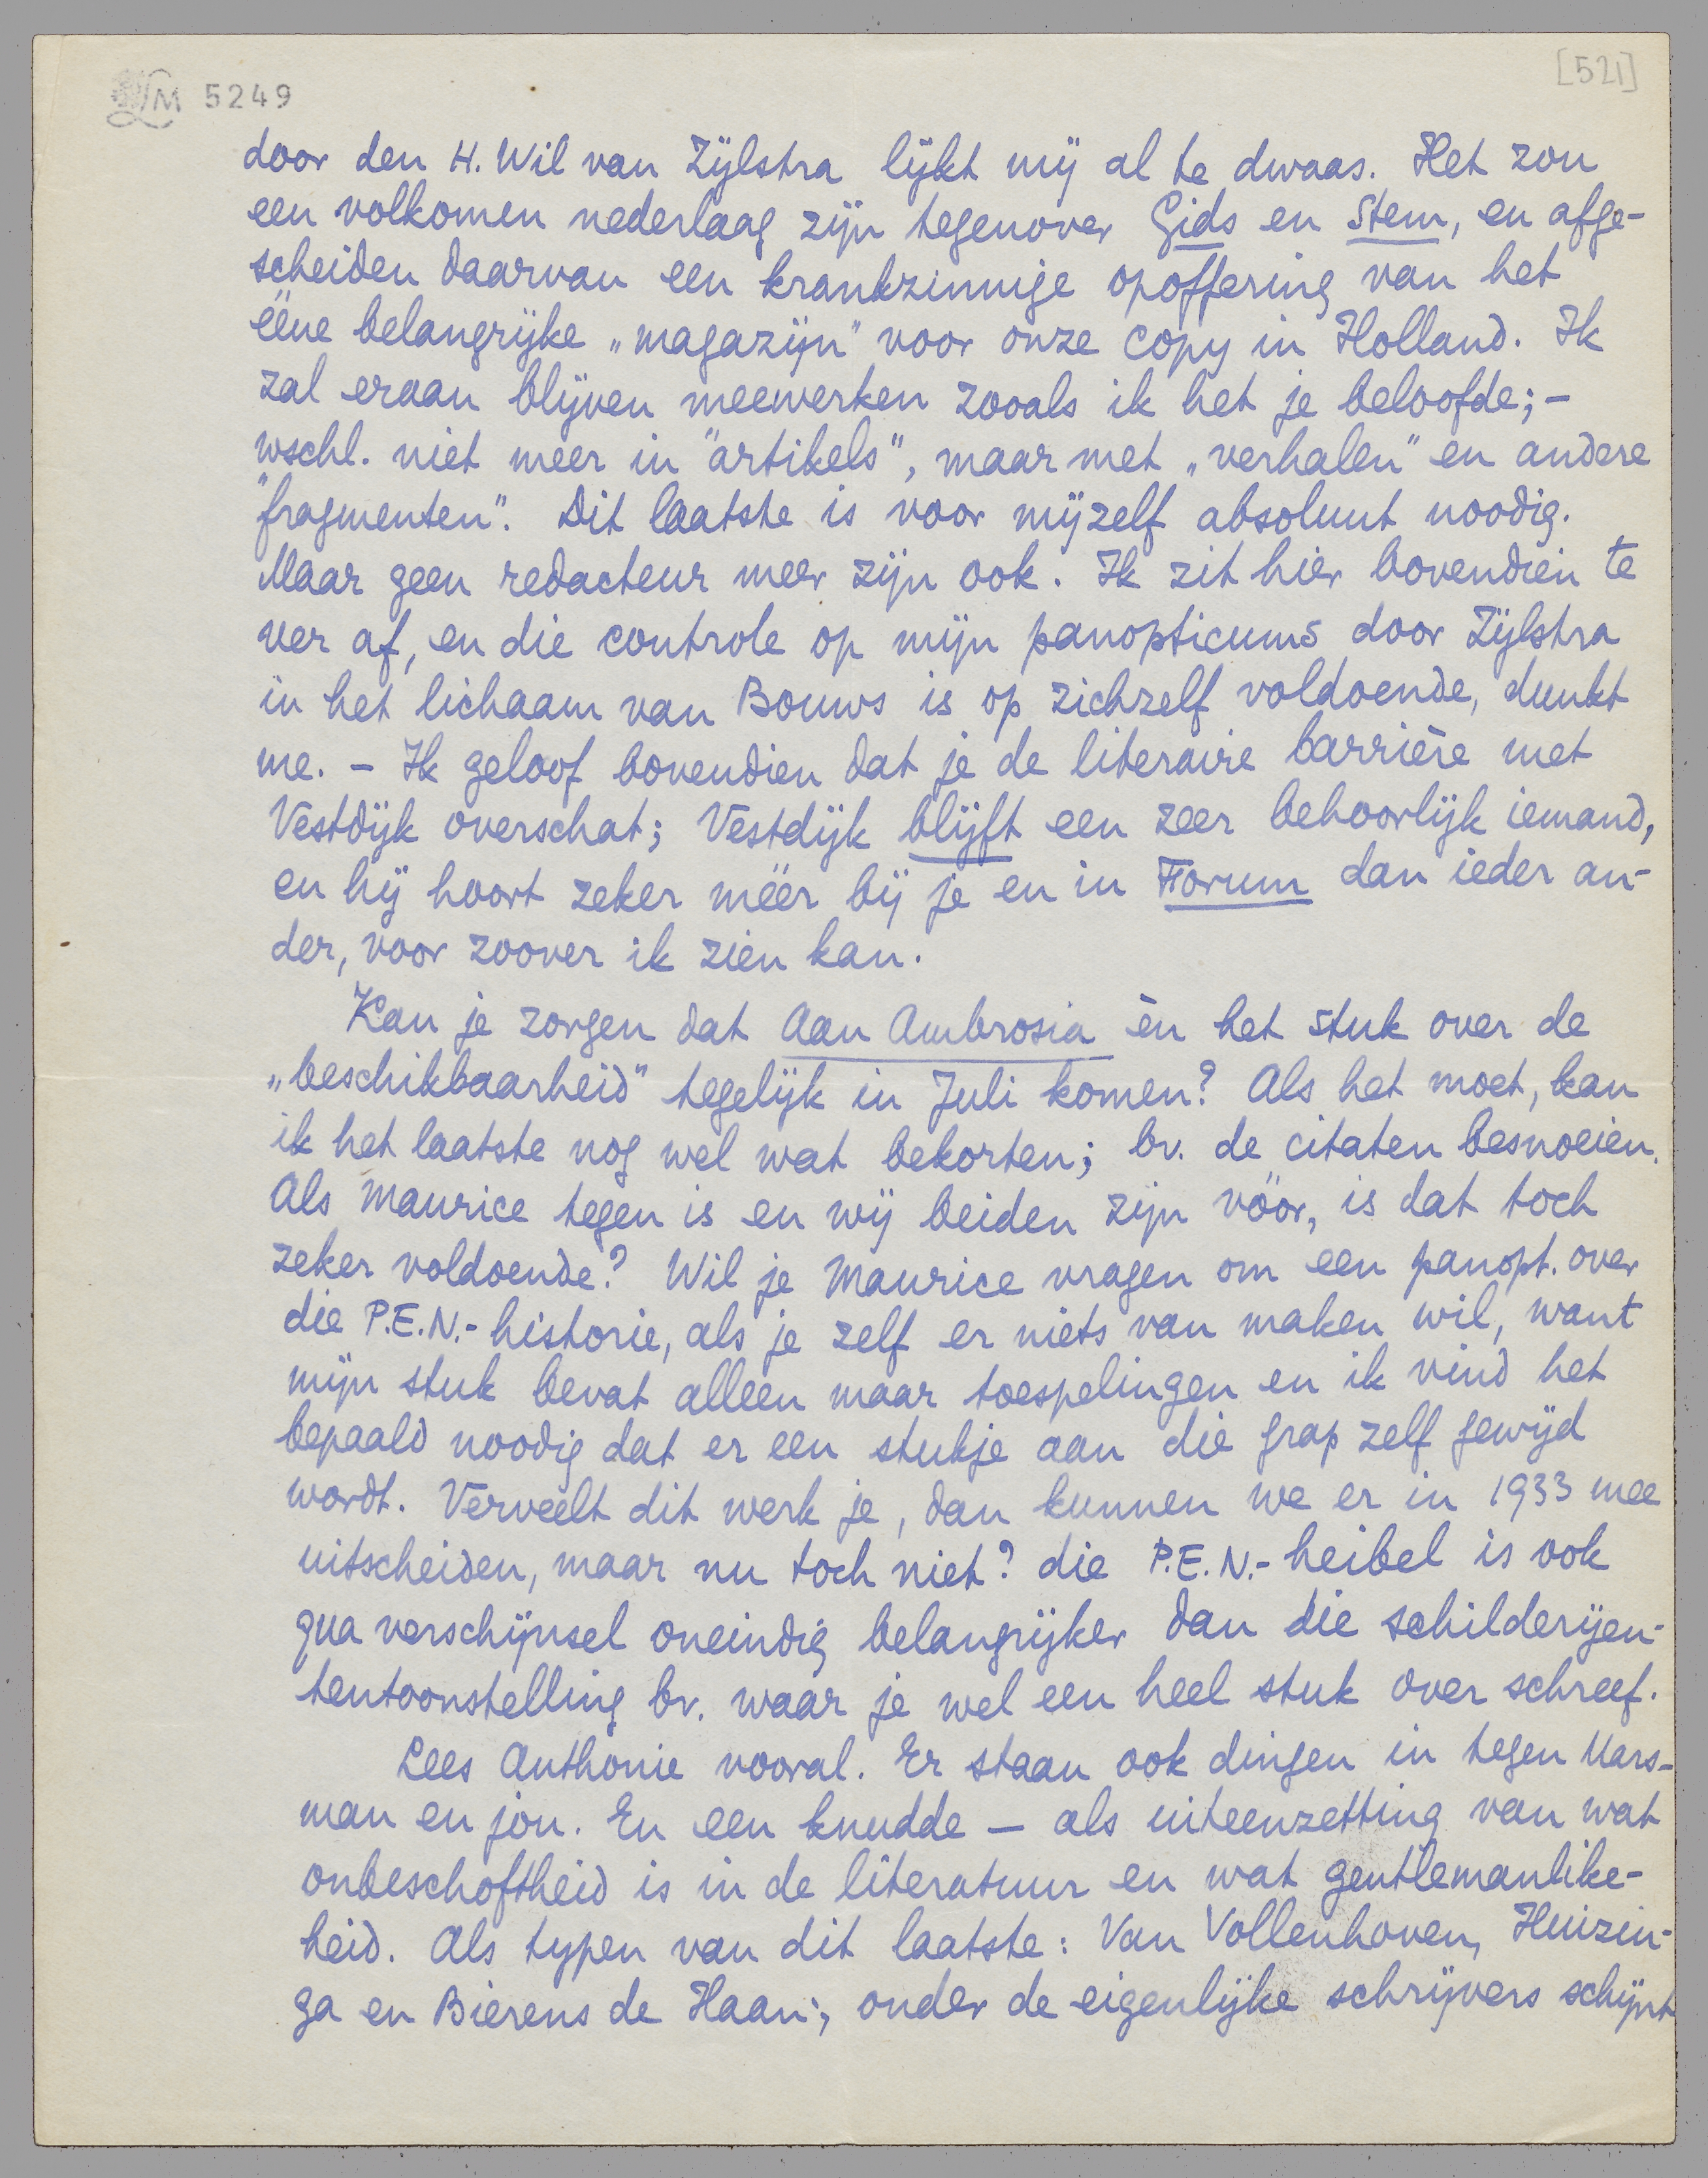 M 5249
[521]
door den H. Wil van Zijlstra lijkt mij al te dwaas. Het zou
een volkomen nederlaag zijn tegenover Gids en Stem, en afge-
scheiden daarvan een krankzinnige opoffering van het
ééne belangrijke „magazijn" voor onze copy in Holland. Ik
zal eraan blijven meewerken zooals ik het je beloofde; -
wschl. niet meer in "artikels", maar met „verhalen" en andere
"fragmenten". Dit laatste is voor mijzelf absoluut noodig.
Maar geen redacteur meer zijn ook. Ik zit hier bovendien te
ver af, en die controle op mijn panopticums door Zijlstra
in het lichaam van Bouws is op zichzelf voldoende, dunkt
me. - Ik geloof bovendien dat je de literaire barrière met
Vestdijk overschat; Vestdijk blijft een zeer behoorlijk iemand,
en hij hoort zeker méér bij je en in Forum dan ieder an-
der, voor zoover ik zien kan.
Kan je zorgen dat Aan Ambrosia èn het stuk over de
„beschikbaarheid" tegelijk in Juli komen? Als het moet, kan
ik het laatste nog wel wat bekorten; bv. de citaten besnoeien.
Als Maurice tegen is en wij beiden zijn vóór, is dat toch
zeker voldoende? Wil je Maurice vragen om een panopt. over
die P.E.N.-historie, als je zelf er niets van maken wil, want
mijn stuk bevat alleen maar toespelingen en ik vind het
bepaald noodig dat er een stukje aan die grap zelf gewijd
wordt. Verveelt dit werk je, dan kunnen we er in 1933 mee
uitscheiden, maar nu toch niet? die P.E.N.-heibel is ook
qua verschijnsel oneindig belangrijker dan die schilderijen-
tentoonstelling bv. waar je wel een heel stuk over schreef.
Lees Anthonie vooral. Er staan ook dingen in tegen Mars-
man en jou. En een knudde - als uiteenzetting van wat
onbeschoftheid is in de literatuur en wat gentlemanlike-
heid. Als typen van dit laatste: Van Vollenhoven, Huizin-
ga en Bierens de Haan; onder de eigenlijke schrijvers schijnt